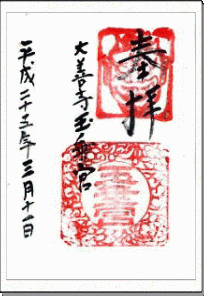 奉拝
大善寺玉垂宮
平成二十五年三月十一日